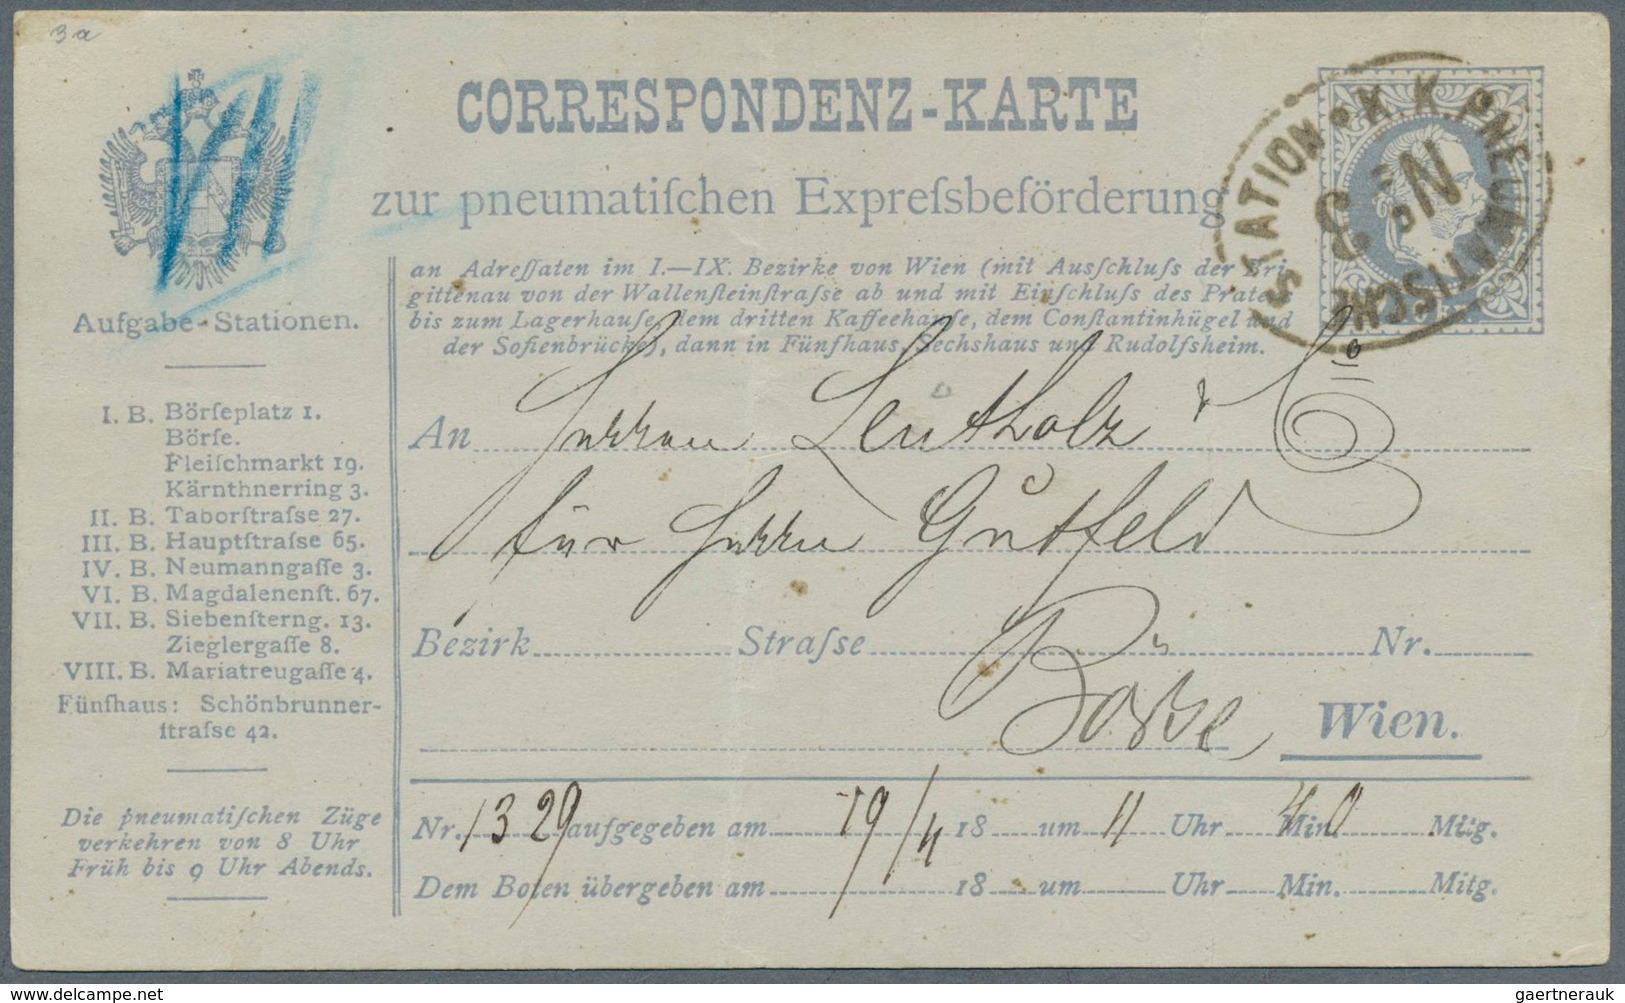 3a
CORRESPONDENZ-KARTE
zur pneumatiſchen Expreſsbeförderung
an Adreſſaten im I.—IX. Bezirke von Wien (mit Ausſchluſs der Bri
gittenau von der Wallenſteinſtraſse ab und mit Einſchluſs des Praters
bis zum Lagerhauſe, dem dritten Kaffeehauſe, dem Conſtantinhügel und
der Sofienbrücke), dann in Fünfhaus, Sechshaus und Rudolfsheim.
K. K. PNEUMATISCHE STATION
No 3
Aufgabe-Stationen.
I. B. Börſeplatz 1.
Börſe.
Fleiſchmarkt 19.
Kärnthnerring 3.
II. B. Taborſtraſse 27.
III. B. Hauptſtraſse 65.
IV. B. Neumanngaſſe 3.
VI. B. Magdalenenſt. 67.
VII. B. Siebenſterng. 13.
Zieglergaſſe 8.
VIII. B. Mariatreugaſſe 4.
Fünfhaus: Schönbrunner-
ſtraſse 42.
Die pneumatiſchen Züge
verkehren von 8 Uhr
Früh bis 9 Uhr Abends.
An Herren Leutholz & Co
für Herrn Gutfeld
Bezirk Straſse Nr.
Börse Wien.
Nr. 1329 aufgegeben am 19/4 18 um 11 Uhr 40 Min. Mitg.
Dem Boten übergeben am 18 um Uhr Min. Mitg.
www.delcampe.net
gaertnerauk